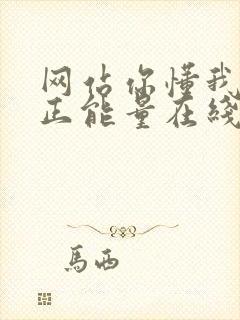 网站你懂我
正能量在线
馬西